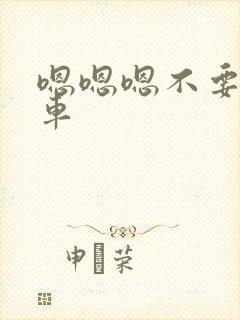 嗯嗯嗯不要
車
申 荣